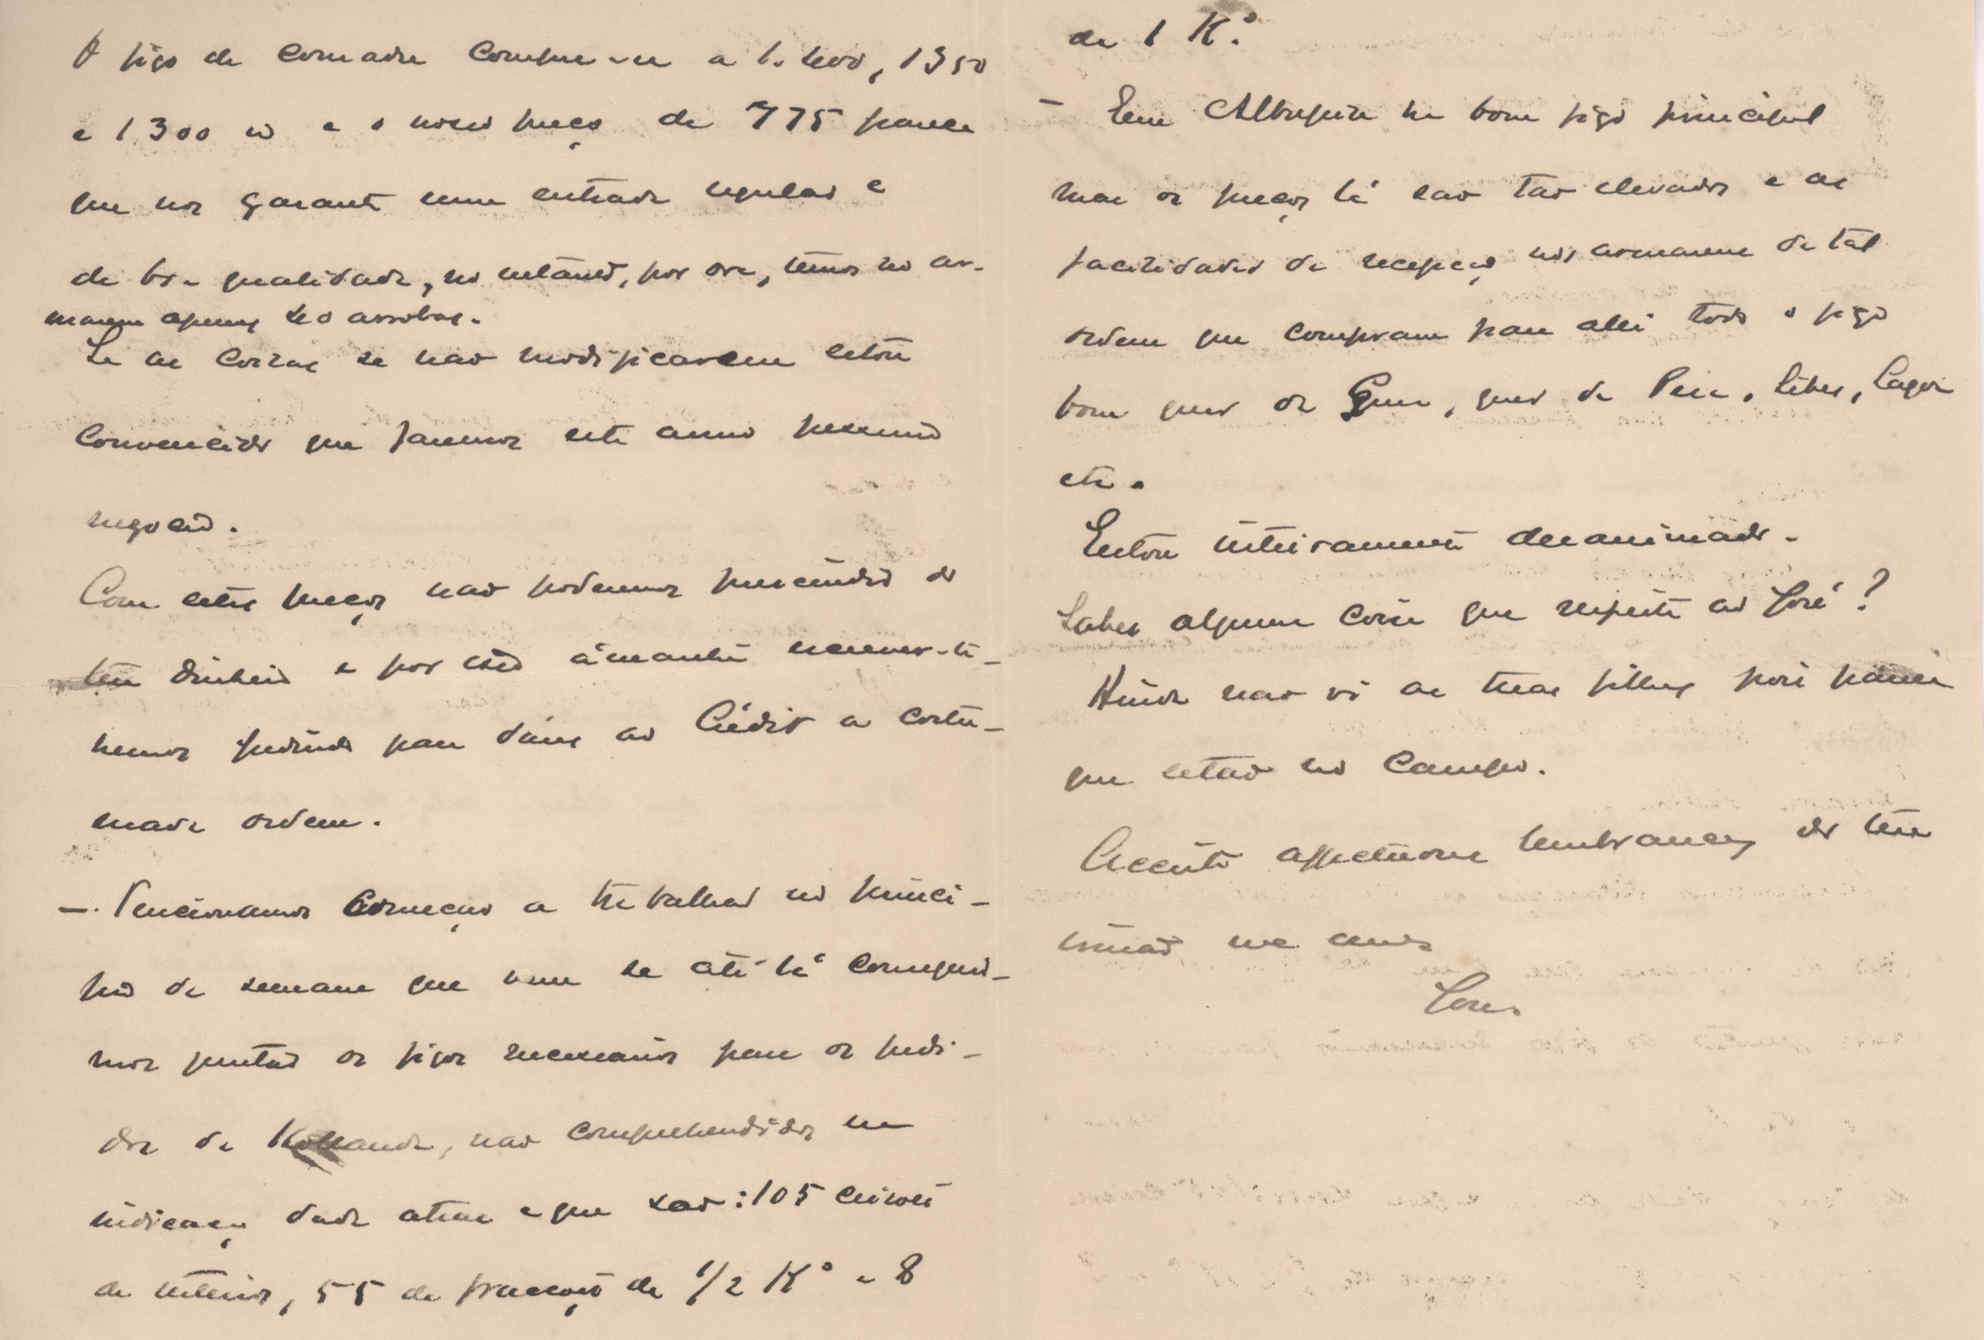 O figo de comadre compra-se a 1. 1350
e 1300 rs e o nosso preço de 775 parece
que nos garante uma entrada regular e
de boa qualidade, no entanto, por ora, temos no ar-
mazem apenas arrobas.
Se as coisas se não modificarem estou
convencido que faremos este anno pessimo
negocio.
Com estes preços não podemos prescindir do
teu dinheiro e por isso ámanhã escrever-te-
hemos pedindo para dáres ao Crédit a costu-
mada ordem.
—. Tencionamos começar a trabalhar no princi-
pio da semana que vem se até lá conseguir-
mos juntar os figos necessarios para os pedi-
dos da Hollanda, não comprehendidos na
indicação dada atraz e que são: 105 ceirões
de inteiros, 55 de fracções de 1/2 Kº e 8
de 1 Kº.
— Em Albufeira ha bom figo principal
mas os preços lá são tão elevados e as
facilidades de recepção nos armazens de tal
ordem que compram para alli todo o figo
bom quer da Guia, quer de Pera, Silves, Lagoa
etc.
Estou inteiramente desanimado.
Sabes alguma coisa que respeite ao José?
Ainda não vi as tuas filhas pois párece
que estão no campo.
Acceita affectuosas lembranças do teu
irmão mto amo